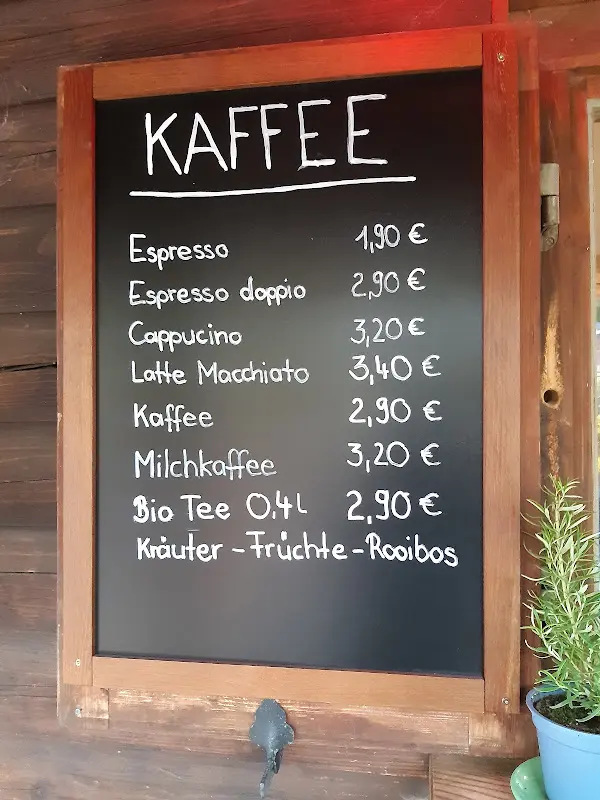 KAFFEE
Espresso 1,90 €
Espresso doppio 2,90 €
Cappucino 3,20 €
Latte Macchiato 3,40 €
Kaffee 2,90 €
Milchkaffee 3,20 €
Bio Tee 0.4L 2,90 €
Kräuter - Früchte - Rooibos